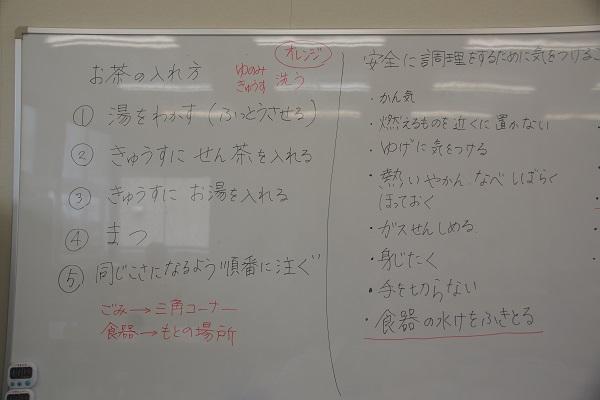 オレンジ
お茶の入れ方
ゆのみ
きゅうす 洗う
① 湯をわかす(ふっとうさせる)
② きゅうすに せん茶を入れる
③ きゅうすに お湯を入れる
④ まつ
⑤ 同じこさになるよう順番に注ぐ
ごみ→三角コーナー
食器→もとの場所
安全に調理をするために気をつけるこ
・かん気
・燃えるものを近くに置かない
・ゆげに気をつける
・熱いやかん、なべ しばらく
ほっておく
・ガスせんしめる
・身じたく
・手を切らない
・食器の水けをふきとる